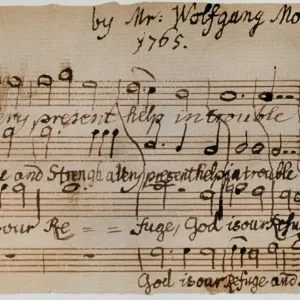 by Mr: Wolfgang Mo
1765.
ery present help in trouble
e and Strength a very present help in trouble
our Re = = fuge, God is our Refu
God is our Refuge and